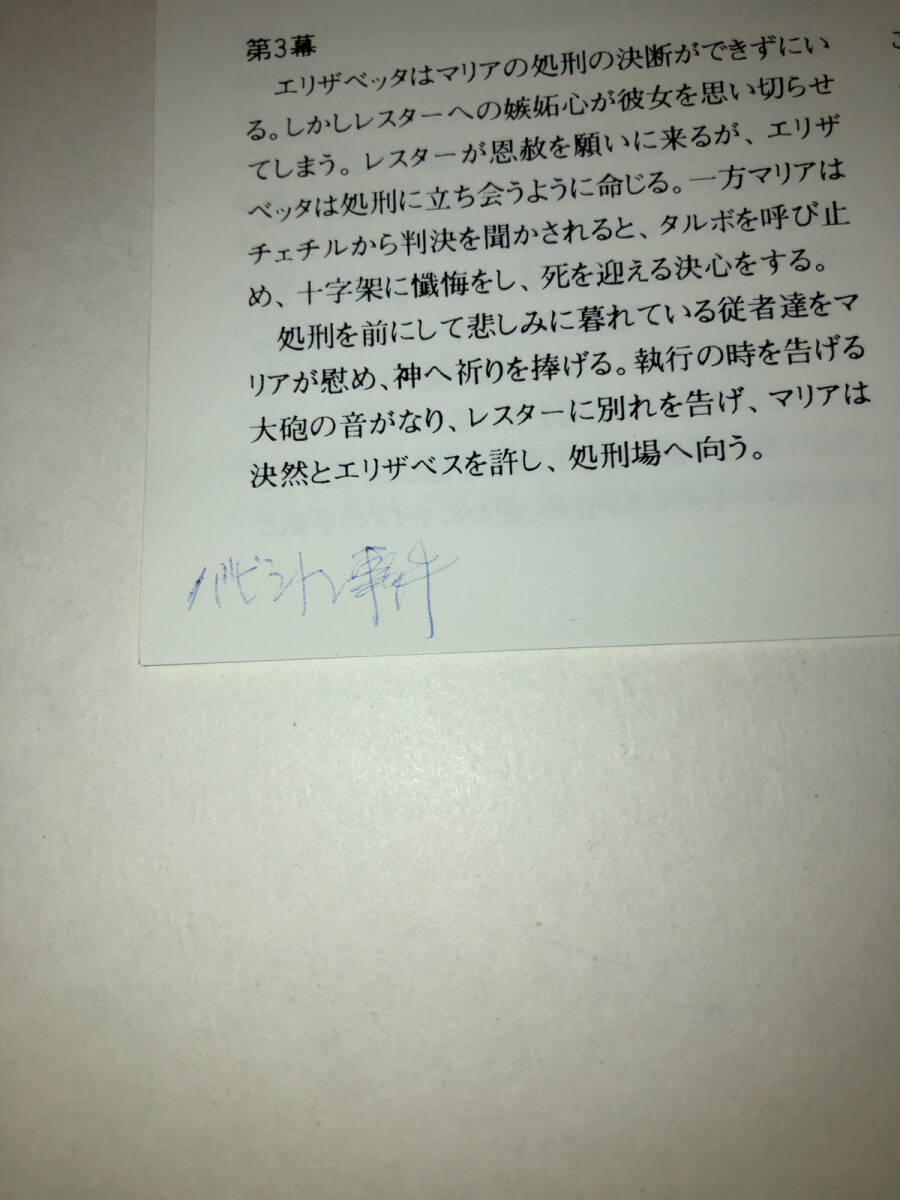 第3幕
エリザベッタはマリアの処刑の決断ができずにい
る。しかしレスターへの嫉妬心が彼女を思い切らせ
てしまう。レスターが恩赦を願いに来るが、エリザ
ベッタは処刑に立ち会うように命じる。一方マリアは
チェチルから判決を聞かされると、タルボを呼び止
め、十字架に懺悔をし、死を迎える決心をする。
処刑を前にして悲しみに暮れている従者達をマ
リアが慰め、神へ祈りを捧げる。執行の時を告げる
大砲の音がなり、レスターに別れを告げ、マリアは
決然とエリザベスを許し、処刑場へ向う。
バビントン事件